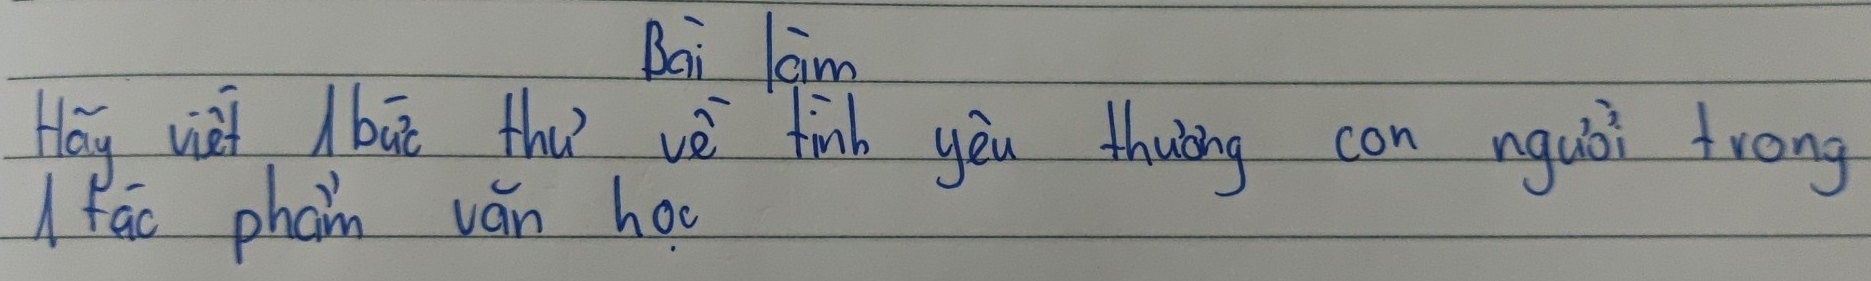 Bài làm
Hãy viết 1 bức thư về tình yêu thương con người trong
1 tác phẩm văn học